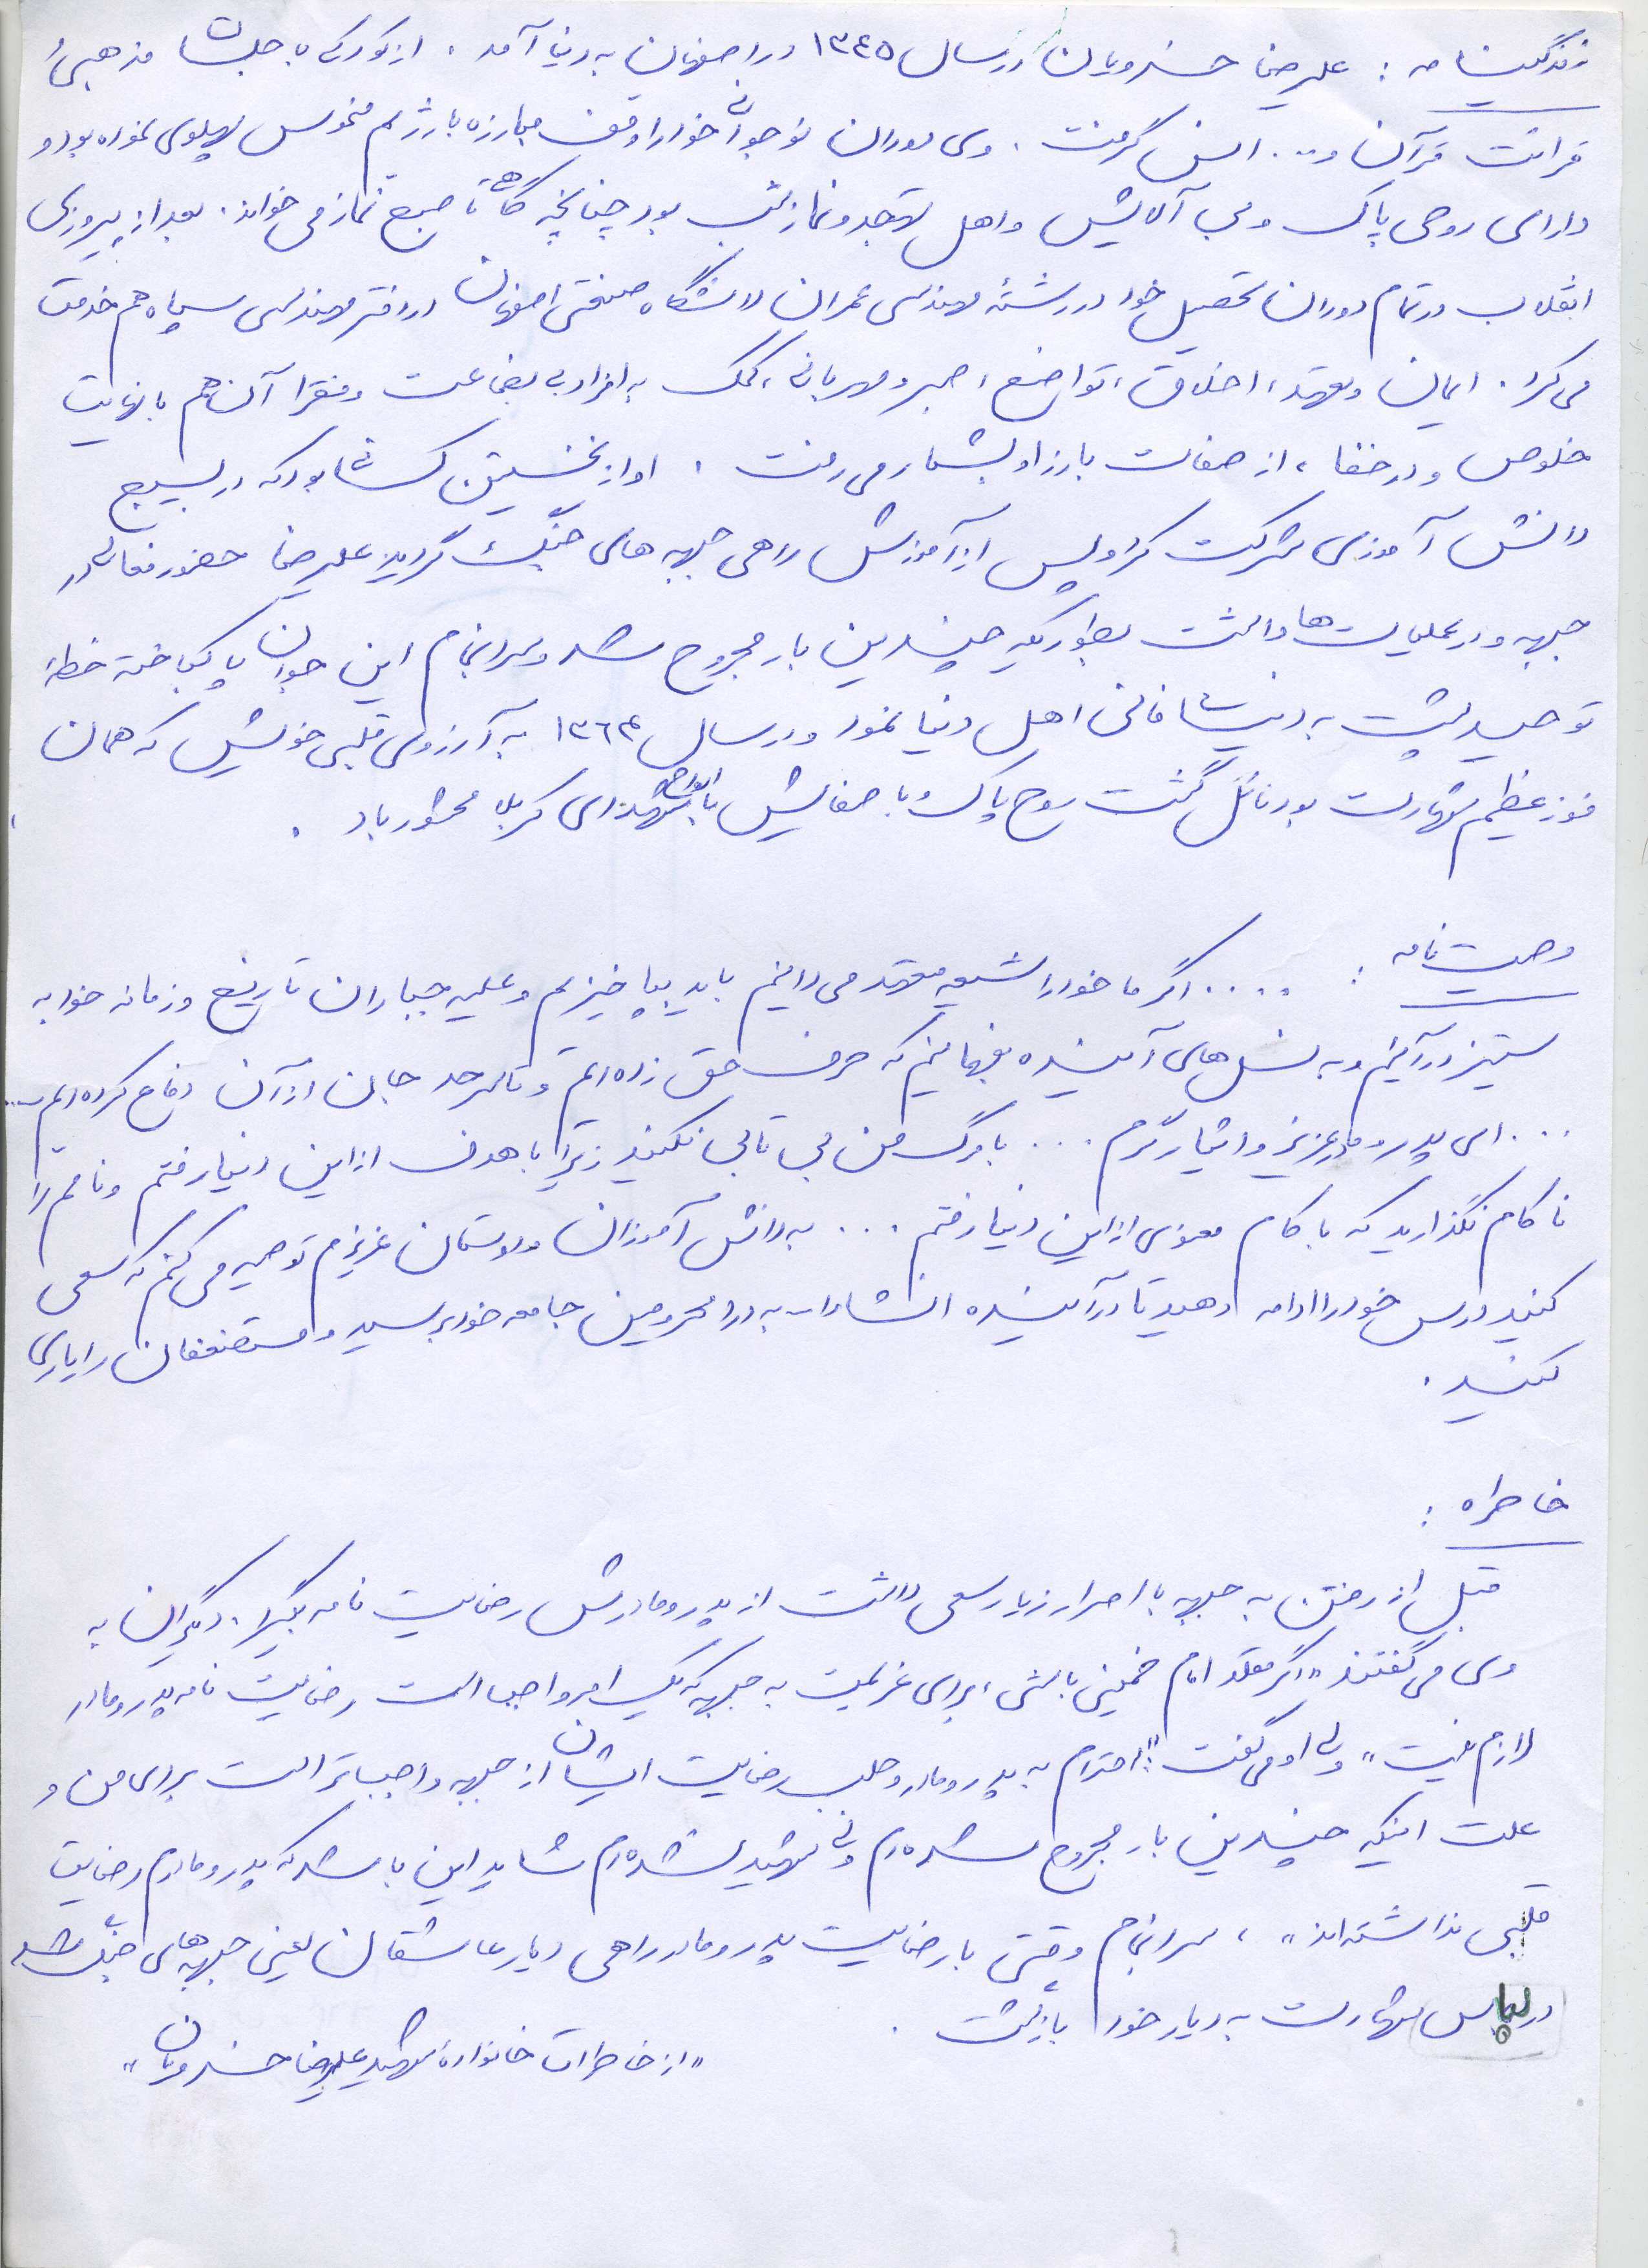 زندگینامه : علیرضا خسرویان در سال ۱۳۴۵ در اصفهان به دنیا آمد . از کودکی با جلسات مذهبی
قرائت قرآن و... انس گرفت . وی دوران نوجوانی خود را وقف مبارزه با رژیم منحوس پهلوی نموده بود و
دارای روحی پاک و بی آلایش و اهل تهجد و نماز شب بود چنانچه گاهی تا صبح نماز می خواند . بعد از پیروزی
انقلاب در تمام دوران تحصیل خود در رشتۀ مهندسی عمران دانشگاه صنعتی اصفهان در دفتر مهندسی سپاه هم خدمت
می کرد . ایمان و تعهد ، اخلاق ، تواضع ، صبر و مهربانی ، کمک به افراد بی بضاعت و فقرا آن هم با نهایت
خلوص و در خفا ، از صفات بارز او بشمار می رفت . او از نخستین کسانی بود که در بسیج
دانش آموزی شرکت کرد و پس از آموزش راهی جبهه های جنگ گردید علیرضا حضور فعالی در
جبهه و در عملیات ها داشت بطوریکه چندین بار مجروح شد و سرانجام این جوان پاکباخته خطۀ
توحید پشت به دنیای فانی اهل دنیا نمود و در سال ۱۳۶۴ به آرزوی قلبی خویش که همان
فوز عظیم شهادت بود نائل گشت روح پاک و با صفایش با ارواح شهدای کربلا محشور باد .
وصیت نامه : .... اگر ما خود را شیعه متعهد می دانیم باید بپا خیزیم و علیه جباران تاریخ و زمانه خود به
ستیز درآئیم و به نسل های آینده بفهمانیم که حرف حق زده ایم و تا سر حد جان از آن دفاع کرده ایم ...
... ای پدر و مادر عزیز و ایثارگرم ... با مرگ من بی تابی نکنید زیرا با هدف از این دنیا رفتم و نامم را
ناکام نگذارید که با کام معنوی از این دنیا رفتم ... به دانش آموزان و دوستان عزیزم توصیه می کنم که سعی
کنید درس خود را ادامه دهید تا در آینده انشاءا... به درد محرومین جامعه خود برسید و مستضعفان را یاری
کنید .
خاطره :
قبل از رفتن به جبهه با اصرار زیاد سعی داشت از پدر و مادرش رضایت نامه بگیرد . دیگران به
وی می گفتند « اگر مقلد امام خمینی باشی ، برای عزیمت به جبهه که یک امر واجب است رضایت نامه پدر و مادر
لازم نیست » ولی او می گفت : « احترام به پدر و مادر و جلب رضایت ایشان از جبهه واجب تر است برای من و
علت اینکه چندین بار مجروح شده ام ولی شهید نشده ام شاید این باشد که پدر و مادرم رضایت
قلبی نداشته اند » ، سرانجام وقتی با رضایت پدر و مادر راهی دیار عاشقان یعنی جبهه های جنگ شد
در لباس شهادت به دیار خود بازگشت .
« از خاطرات خانوادۀ شهید علیرضا خسرویان »